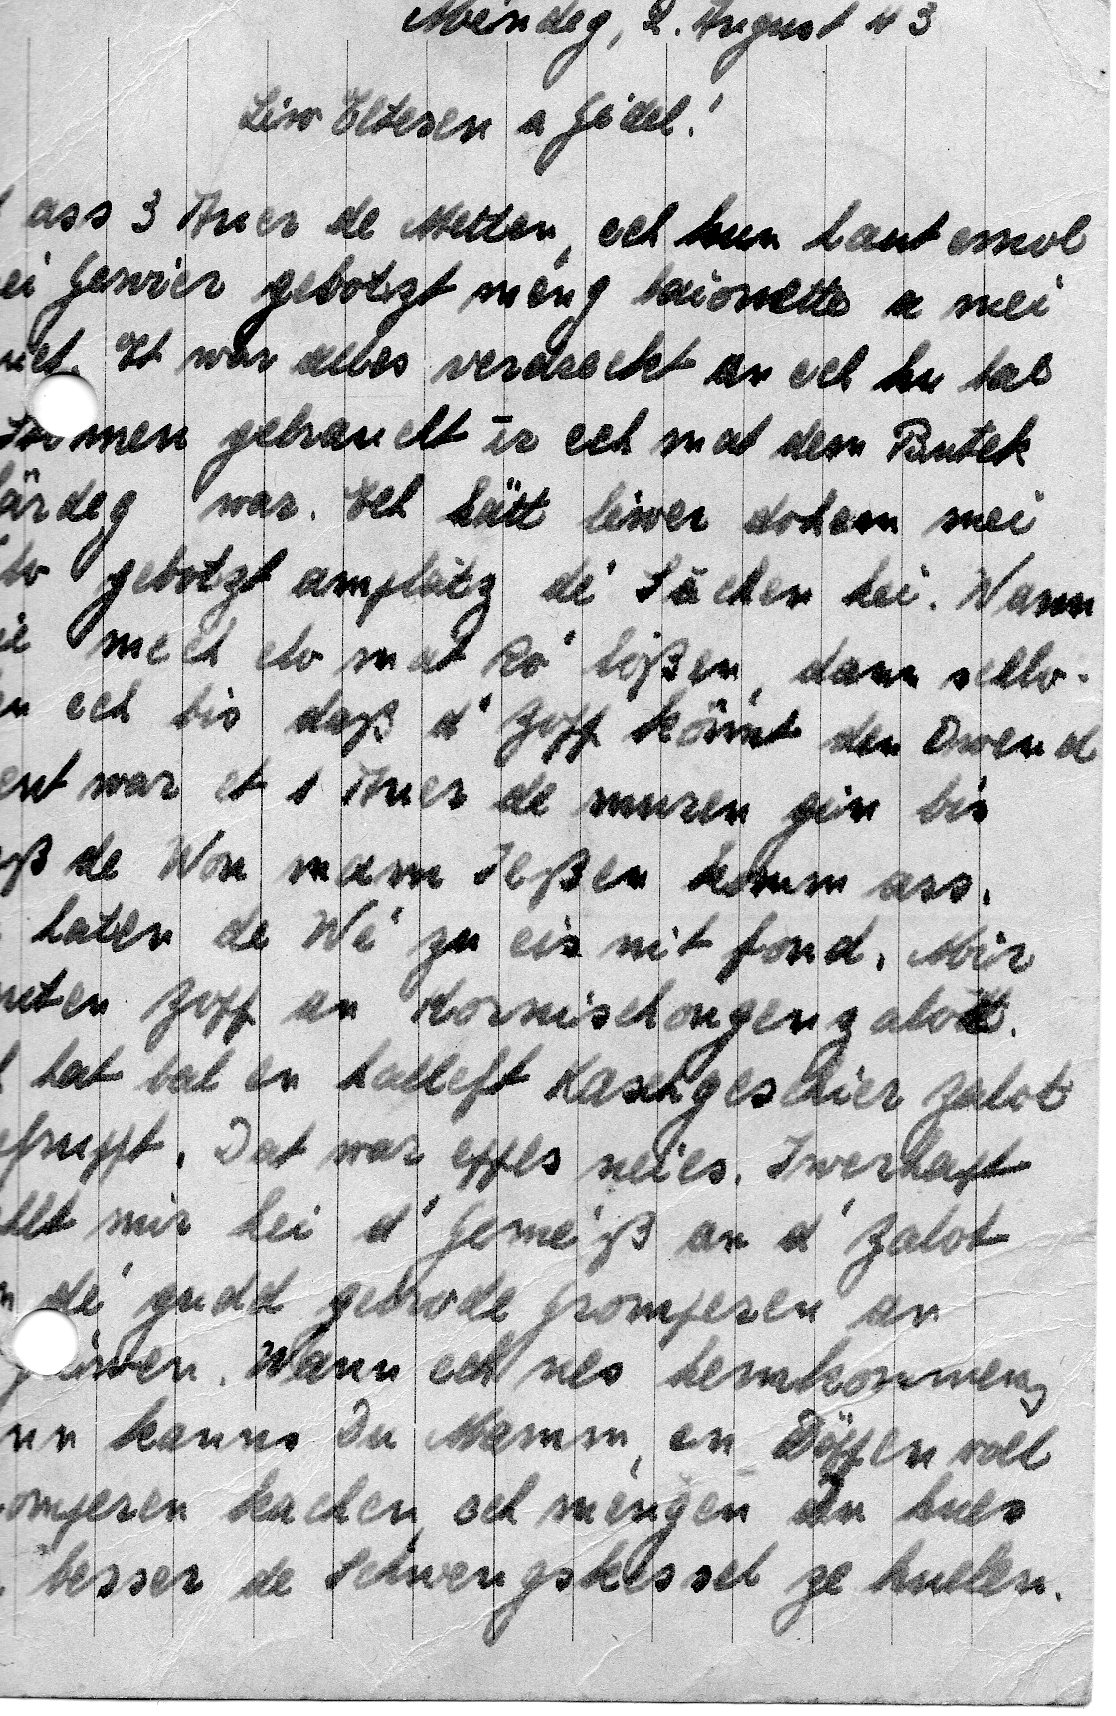 Méindeg, 2. August 43
Liw Elteren a Gédel!
ass 3 Auer de Metten, ech hun haut emol
Gewier gebotzt méng baionette a mei
Et war alles verdreckt an ech hu bal
gebraucht ir ech mat dem Butek
färdeg war. Ech hätt liwer dohem mei
gebotzt amplätz dé Sachen hei. Wann
mech elo mat Ro' loßen, dann schlo-
ech bis daß d' Zopp könnt den Owend
war et 1 Auer de muren gin bis
de Won mam Ießen komm ass.
haten de Wé zu eis nit fond. Mir
Zopp an Kornischongenzalot.
hat bal en halleft Kaschgeschier Zalot
Dat war eppes neies. Iwerhapt
mir hei d' Geméiß an d' Zalot
dé gudd gebrode Gromperen an
Wann ech nes hemkommen,
kanns Du Mamm, en Döppen voll
kachen, ech méngen Du hues
besser de Schwengskessel ze huelen.